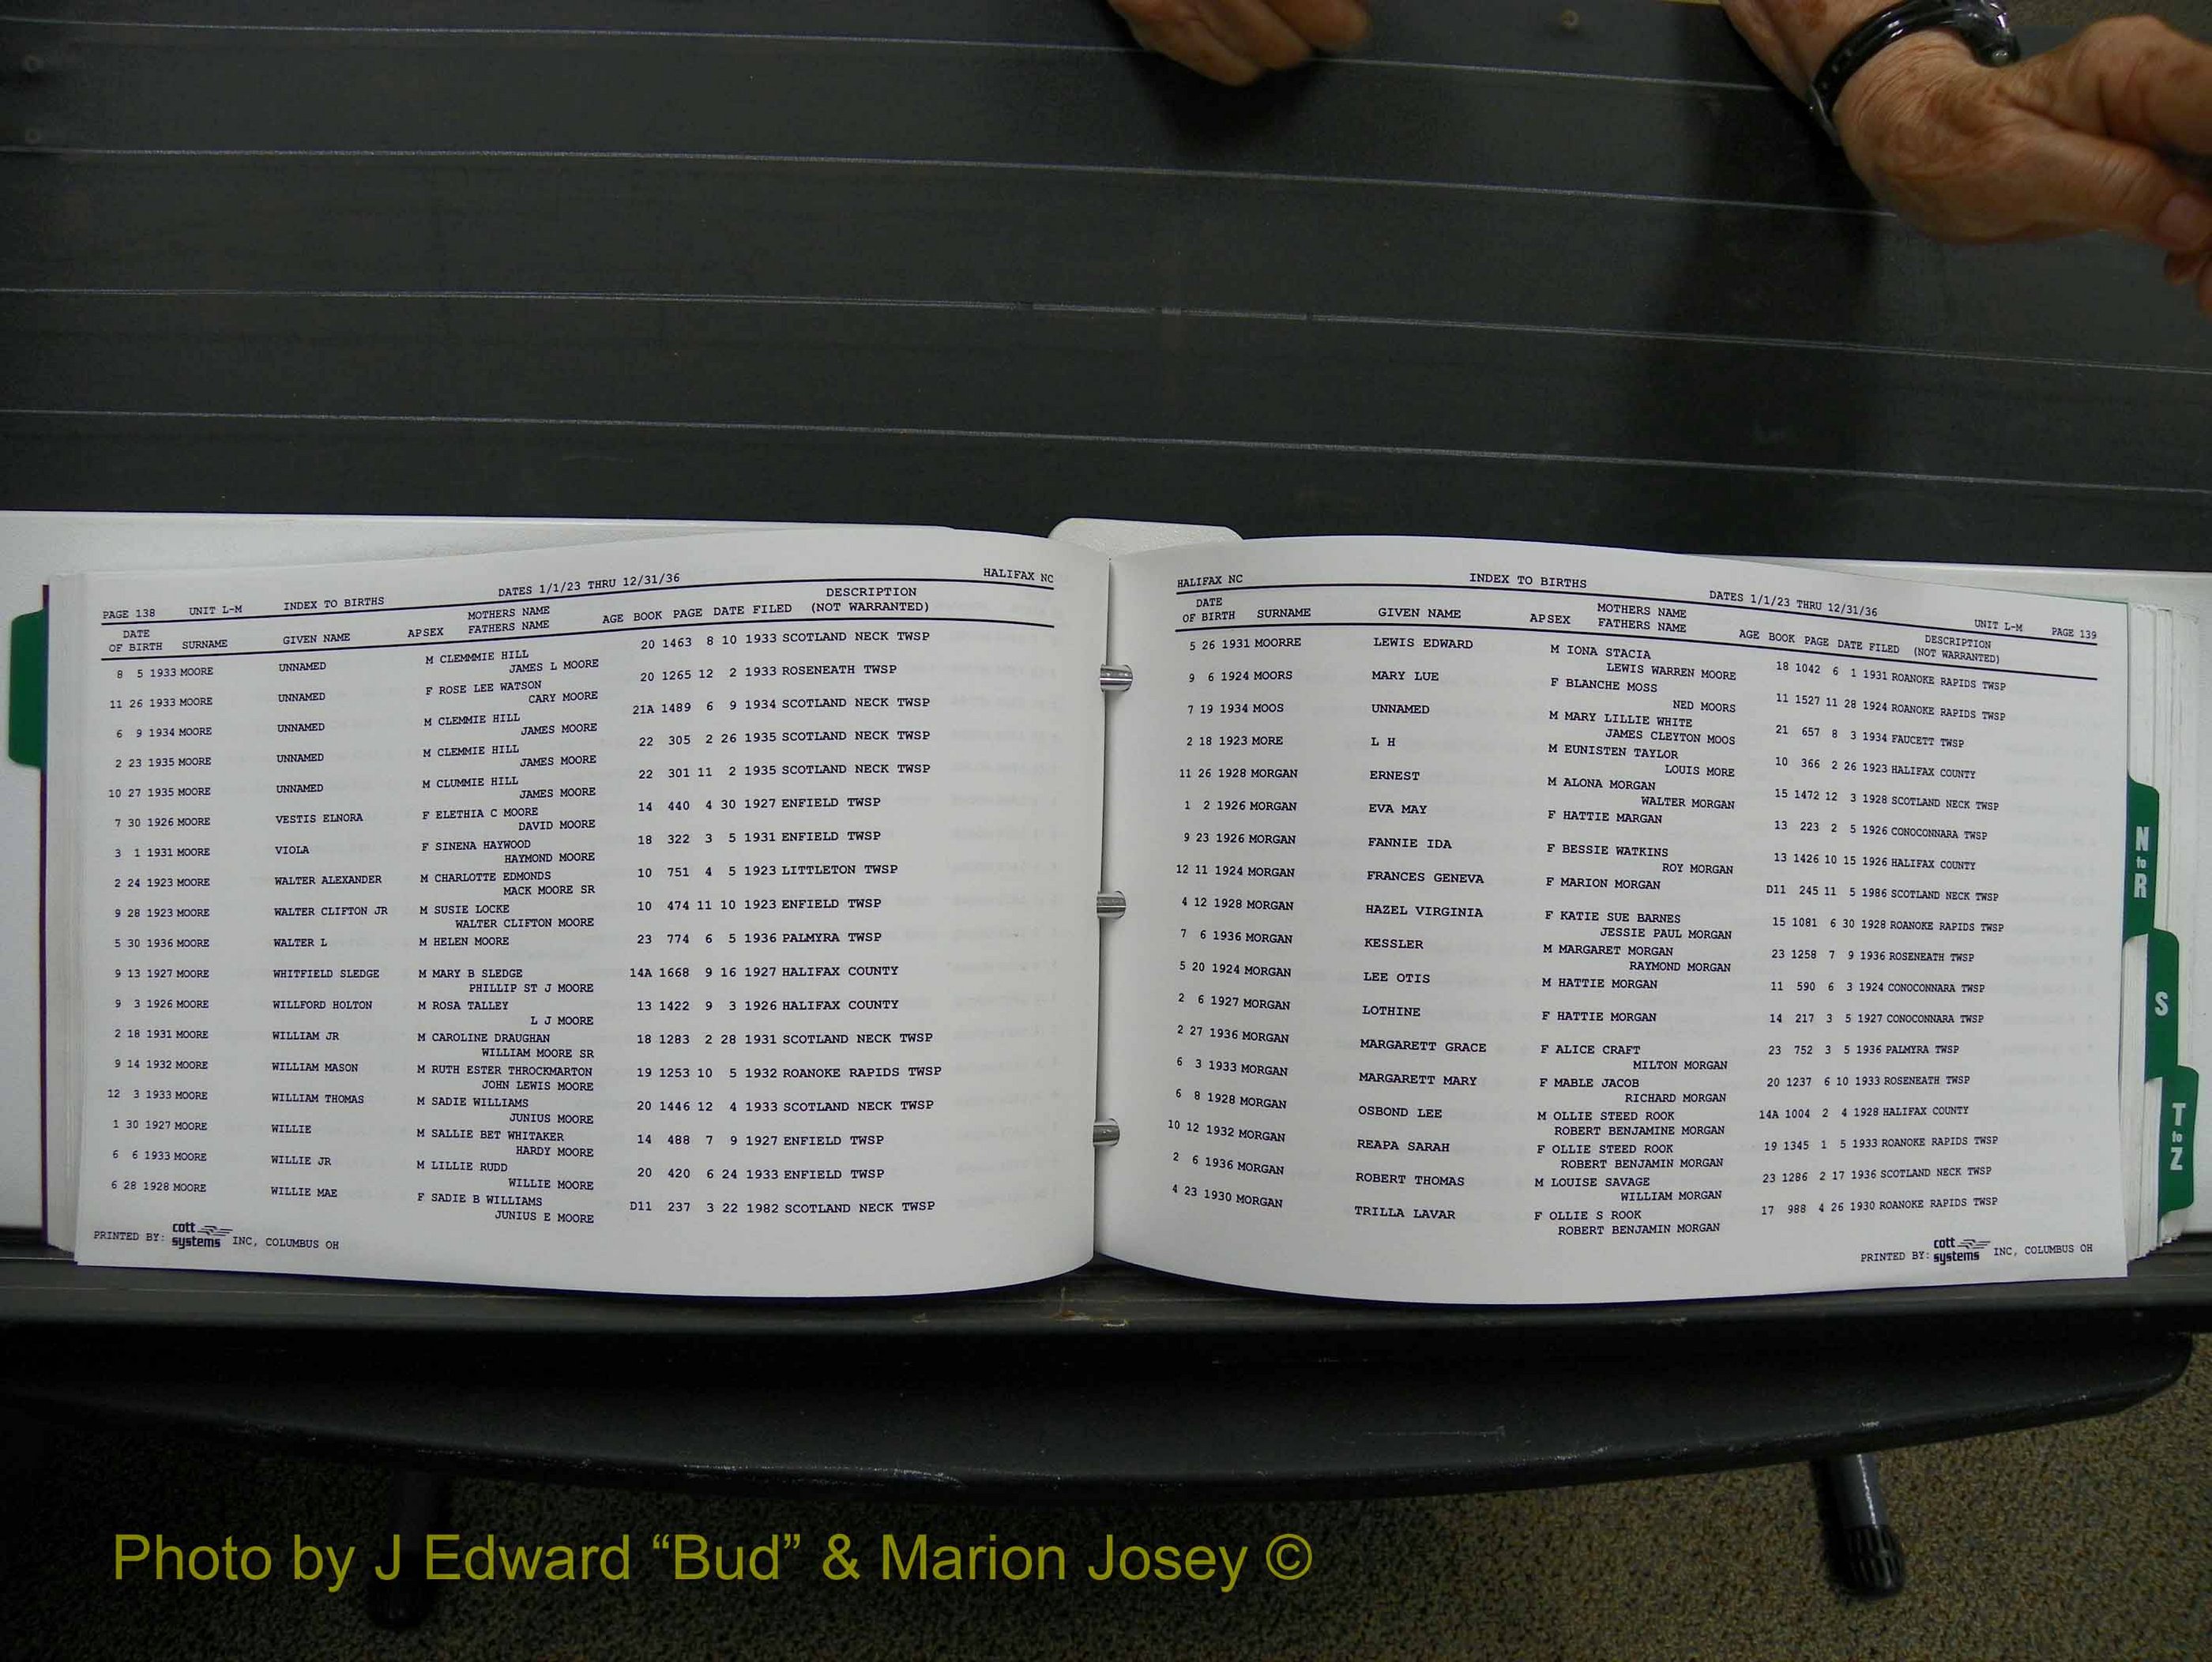 PAGE 138 UNIT L-M INDEX TO BIRTHS DATES 1/1/23 THRU 12/31/36 HALIFAX NC
DATE MOTHERS NAME DESCRIPTION
OF BIRTH SURNAME GIVEN NAME AP SEX FATHERS NAME AGE BOOK PAGE DATE FILED (NOT WARRANTED)
8 5 1933 MOORE UNNAMED M CLEMMMIE HILL 20 1463 8 10 1933 SCOTLAND NECK TWSP
JAMES L MOORE
11 26 1933 MOORE UNNAMED F ROSE LEE WATSON 20 1265 12 2 1933 ROSENEATH TWSP
CARY MOORE
6 9 1934 MOORE UNNAMED M CLEMMIE HILL 21A 1489 6 9 1934 SCOTLAND NECK TWSP
JAMES MOORE
2 23 1935 MOORE UNNAMED M CLEMMIE HILL 22 305 2 26 1935 SCOTLAND NECK TWSP
JAMES MOORE
10 27 1935 MOORE UNNAMED M CLUMMIE HILL 22 301 11 2 1935 SCOTLAND NECK TWSP
JAMES MOORE
7 30 1926 MOORE VESTIS ELNORA F ELETHIA C MOORE 14 440 4 30 1927 ENFIELD TWSP
DAVID MOORE
3 1 1931 MOORE VIOLA F SINENA HAYWOOD 18 322 3 5 1931 ENFIELD TWSP
HAYMOND MOORE
2 24 1923 MOORE WALTER ALEXANDER M CHARLOTTE EDMONDS 10 751 4 5 1923 LITTLETON TWSP
MACK MOORE SR
9 28 1923 MOORE WALTER CLIFTON JR M SUSIE LOCKE 10 474 11 10 1923 ENFIELD TWSP
WALTER CLIFTON MOORE
5 30 1936 MOORE WALTER L M HELEN MOORE 23 774 6 5 1936 PALMYRA TWSP
9 13 1927 MOORE WHITFIELD SLEDGE M MARY B SLEDGE 14A 1668 9 16 1927 HALIFAX COUNTY
PHILLIP ST J MOORE
9 3 1926 MOORE WILLFORD HOLTON M ROSA TALLEY 13 1422 9 3 1926 HALIFAX COUNTY
L J MOORE
2 18 1931 MOORE WILLIAM JR M CAROLINE DRAUGHAN 18 1283 2 28 1931 SCOTLAND NECK TWSP
WILLIAM MOORE SR
9 14 1932 MOORE WILLIAM MASON M RUTH ESTER THROCKMARTON 19 1253 10 5 1932 ROANOKE RAPIDS TWSP
JOHN LEWIS MOORE
12 3 1933 MOORE WILLIAM THOMAS M SADIE WILLIAMS 20 1446 12 4 1933 SCOTLAND NECK TWSP
JUNIUS MOORE
1 30 1927 MOORE WILLIE M SALLIE BET WHITAKER 14 488 7 9 1927 ENFIELD TWSP
HARDY MOORE
6 6 1933 MOORE WILLIE JR M LILLIE RUDD 20 420 6 24 1933 ENFIELD TWSP
WILLIE MOORE
6 28 1928 MOORE WILLIE MAE F SADIE B WILLIAMS D11 237 3 22 1982 SCOTLAND NECK TWSP
JUNIUS E MOORE
PRINTED BY: cott systems INC, COLUMBUS OH
HALIFAX NC INDEX TO BIRTHS DATES 1/1/23 THRU 12/31/36 UNIT L-M PAGE 139
DATE MOTHERS NAME DESCRIPTION
OF BIRTH SURNAME GIVEN NAME AP SEX FATHERS NAME AGE BOOK PAGE DATE FILED (NOT WARRANTED)
5 26 1931 MOORRE LEWIS EDWARD M IONA STACIA 18 1042 6 1 1931 ROANOKE RAPIDS TWSP
LEWIS WARREN MOORE
9 6 1924 MOORS MARY LUE F BLANCHE MOSS 11 1527 11 28 1924 ROANOKE RAPIDS TWSP
NED MOORS
7 19 1934 MOOS UNNAMED M MARY LILLIE WHITE 21 657 8 3 1934 FAUCETT TWSP
JAMES CLEYTON MOOS
2 18 1923 MORE L H M EUNISTEN TAYLOR 10 366 2 26 1923 HALIFAX COUNTY
LOUIS MORE
11 26 1928 MORGAN ERNEST M ALONA MORGAN 15 1472 12 3 1928 SCOTLAND NECK TWSP
WALTER MORGAN
1 2 1926 MORGAN EVA MAY F HATTIE MARGAN 13 223 2 5 1926 CONOCONNARA TWSP
9 23 1926 MORGAN FANNIE IDA F BESSIE WATKINS 13 1426 10 15 1926 HALIFAX COUNTY
ROY MORGAN
12 11 1924 MORGAN FRANCES GENEVA F MARION MORGAN D11 245 11 5 1986 SCOTLAND NECK TWSP
4 12 1928 MORGAN HAZEL VIRGINIA F KATIE SUE BARNES 15 1081 6 30 1928 ROANOKE RAPIDS TWSP
JESSIE PAUL MORGAN
7 6 1936 MORGAN KESSLER M MARGARET MORGAN 23 1258 7 9 1936 ROSENEATH TWSP
RAYMOND MORGAN
5 20 1924 MORGAN LEE OTIS M HATTIE MORGAN 11 590 6 3 1924 CONOCONNARA TWSP
2 6 1927 MORGAN LOTHINE F HATTIE MORGAN 14 217 3 5 1927 CONOCONNARA TWSP
2 27 1936 MORGAN MARGARETT GRACE F ALICE CRAFT 23 752 3 5 1936 PALMYRA TWSP
MILTON MORGAN
6 3 1933 MORGAN MARGARETT MARY F MABLE JACOB 20 1237 6 10 1933 ROSENEATH TWSP
RICHARD MORGAN
6 8 1928 MORGAN OSBOND LEE M OLLIE STEED ROOK 14A 1004 2 4 1928 HALIFAX COUNTY
ROBERT BENJAMINE MORGAN
10 12 1932 MORGAN REAPA SARAH F OLLIE STEED ROOK 19 1345 1 5 1933 ROANOKE RAPIDS TWSP
ROBERT BENJAMIN MORGAN
2 6 1936 MORGAN ROBERT THOMAS M LOUISE SAVAGE 23 1286 2 17 1936 SCOTLAND NECK TWSP
WILLIAM MORGAN
4 23 1930 MORGAN TRILLA LAVAR F OLLIE S ROOK 17 988 4 26 1930 ROANOKE RAPIDS TWSP
ROBERT BENJAMIN MORGAN
PRINTED BY: cott systems INC, COLUMBUS OH
N to R
S
T to Z
Photo by J Edward “Bud” & Marion Josey ©